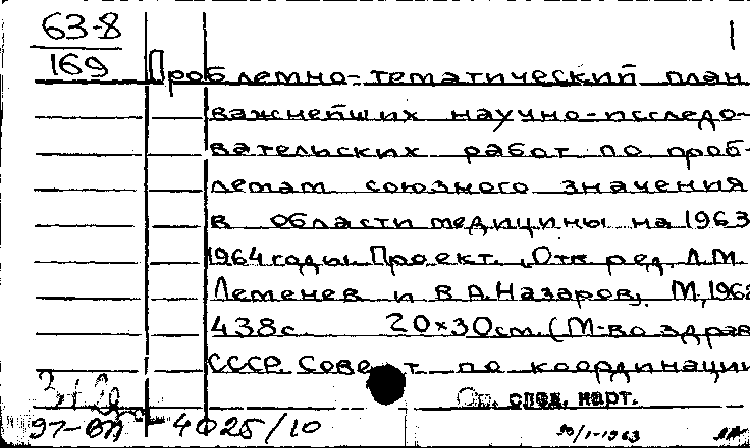 63-8
169
Проблемно-тематический план
важнейших научно-исследо-
вательских работ по проб-
лемам союзного значения
в области медицины на 1963
1964 годы. Проект. Отв. ред. Л.М.
Леменев и В.А. Назаров. М., 196
438с. 20×30см. (М-во здрав
СССР. Сове т по координации
след. карт.
97- 4025/10
30/I-1963